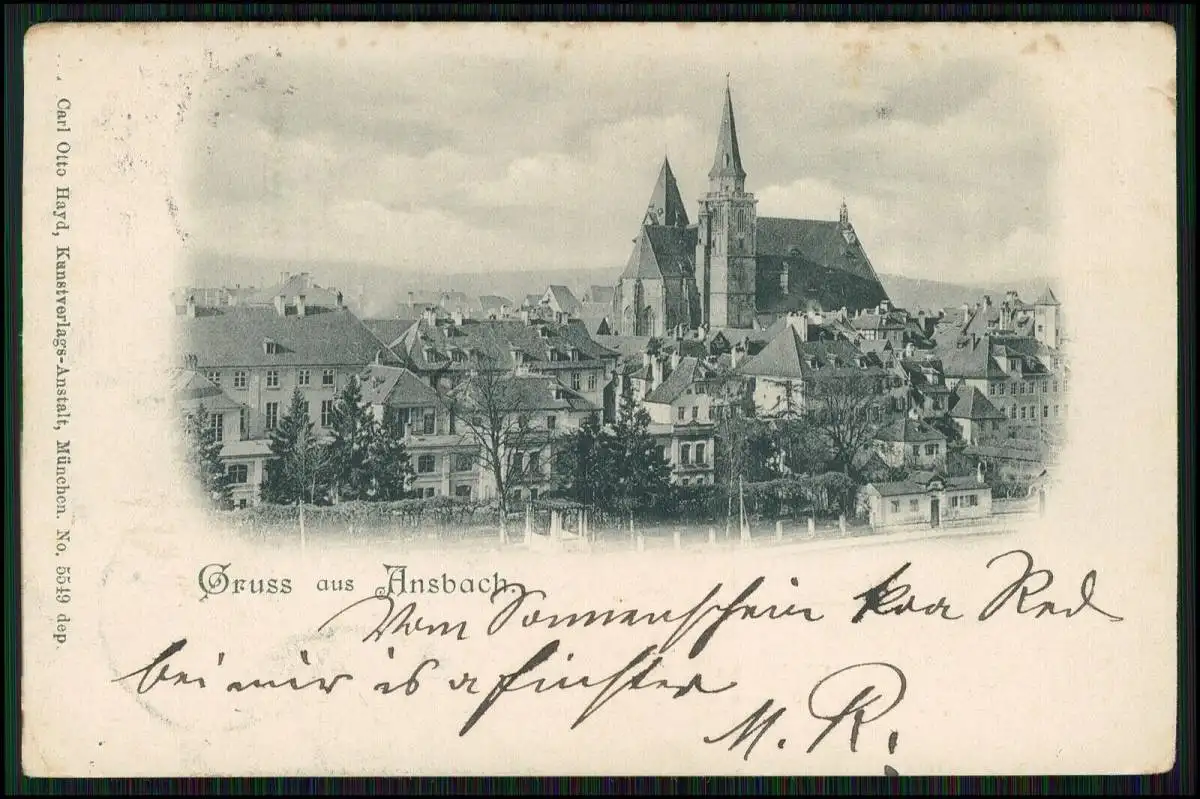 Carl Otto Hayd, Kunstverlags-Anstalt, München. No. 5549 dep.
Gruss aus Ansbach.
Vom Sonnenschein koa Red
bei mir is a finster
M. R.